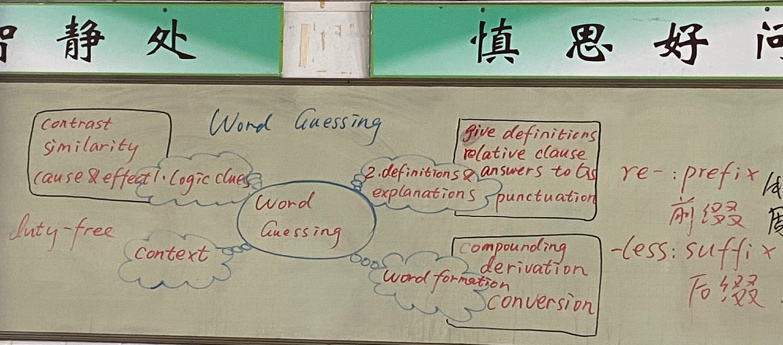 静处
慎思好问
Word Guessing
contrast
similarity
cause & effect
1. Logic clues
2. definitions &
explanations
give definitions
relative clause
answers to Qs
punctuation
Word
Guessing
context
duty-free
word formation
compounding
derivation
conversion
re-: prefix
前缀
-less: suffix
后缀